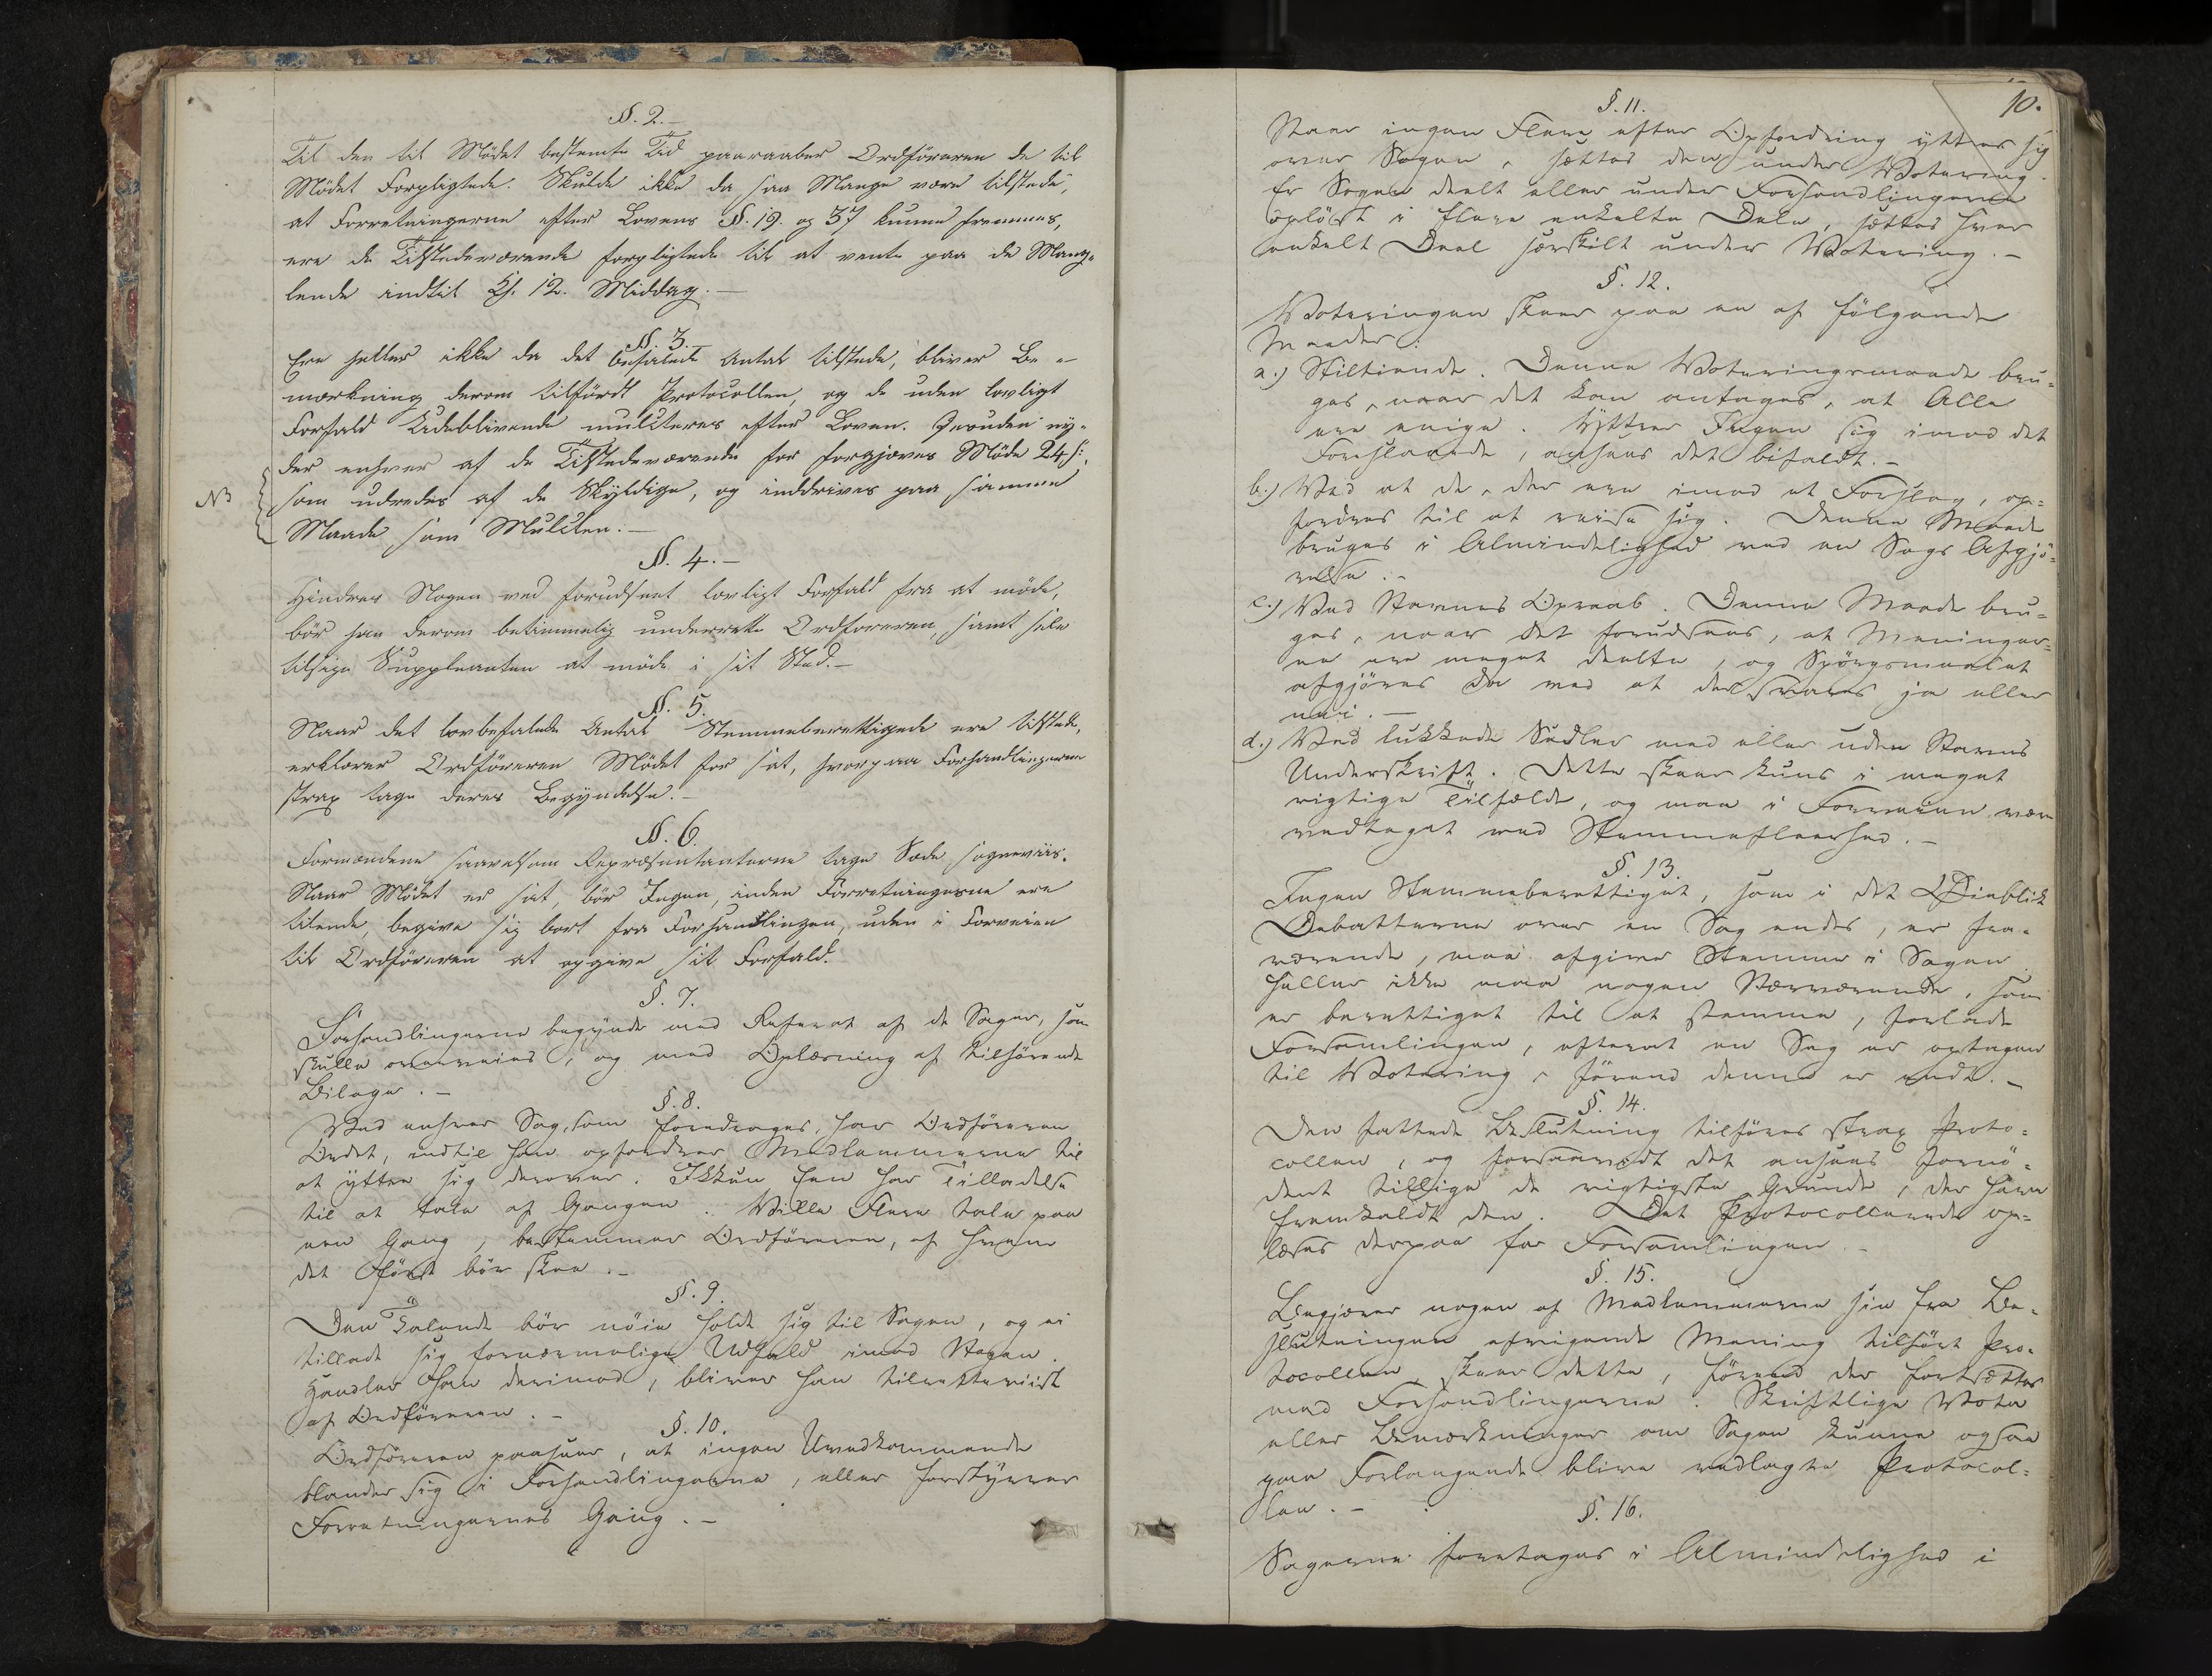 §. 2.-
Til den til Mödet bestemte Tid paaraaber Ordföreren de til
Mödet Forpligtede. Skulde ikke da saa Mange være tilstede,
at Forretningerne efter Lovens §. 19. og 37 kunne fremmes,
ere de Tilstedeværende forpligtede til at vente paa de Mang-
lende indtil Kl. 12. Middag.-
§. 3.-
Ere heller ikke da det befalede Antal tilstede, bliver Be-
mærkning derom tilfördt Protocollen, og de uden lovligt
Forfald Udeblivende mulcteres efter Loven. Desuden ny-
der enhver af de Tilstedeværende for forgjæves Möde 24 s:,
NB
som udredes af de Skyldige, og inddrives paa samme
Maade som Mulcten.-
§. 4.-
Hindres Nogen ved forudseet lovligt Forfald fra at möde,
bör han derom betimmelig underrette Ordföreren, samt selv
tilsige Suppleanten at möde i sit Sted.-
§. 5.
Naar det lovbefalede Antal Stemmeberettigede ere tilstede,
erklærer Ordföreren Mödet for sat, hvorpaa Forhandlingerne
strax tage deres Begyndelse.-
§. 6.
Formændene saavelsom Repræsentanterne tage Sæde sogneviis.
Naar Mödet er sat, bör Ingen, inden Forretningerne ere
tilende, begive sig bort fra Forhandlingen, uden i Forveien
til Ordföreren at opgive sit Forfald.
§. 7.
Forhandlingerne begynde med Referat af de Sager, som
skulle overveies, og med Oplæsning af tilhörende
Bilage.-
§. 8.
Ved enhver Sag, som foredrages, har Ordföreren
Ordet, indtil han opfordrer Medlemmerne til
at yttre sig derover. Ikkun Een har Tilladelse
til at tale af Gangen. Ville Flere tale paa
een Gang, bestemmer Ordföreren, af hvem
det först bör skee.-
§. 9.
Den Talende bör nöie holde sig til Sagen, og ei
tillade sig fornærmelige Udfald imod Nogen.
Handler han derimod, bliver han tilretteviist
af Ordföreren.-
§. 10.
Ordföreren paaseer, at ingen Uvedkommende
blander sig i Forhandlingerne, eller forstyrrer
Forretningernes Gang.-
10.
§. 11.
Naar ingen Flere efter Opfordring yttrer sig
over Sagen, sættes den under Votering.
Er Sagen deelt eller under Forhandlingerne
oplöst i flere enkelte Dele, sættes hver
enkelt Deel særskilt under Votering.-
§. 12.
Voteringen skeer paa en af fölgende
Maader:
a.) Stiltiende. Denne Voteringsmaade bru-
ges, naar det kan antages, at Alle
ere enige. Yttrer Ingen sig imod det
Foreslaaede, ansees det bifaldt.-
b.) Ved at de, der ere imod et Forslag, op-
fordres til at reise sig. Denne Maade
bruges i Almindelighed ved en Sags Afgjö-
relse.-
c.) Ved Navnes Opraab. Denne Maade bru-
ges, naar det forudsees, at Meninger-
ne ere meget deelte, og Spörgsmaalet
afgjöres da med at der svares ja eller
nei.-
d.) Ved lukkede Sedler med eller uden Navns
Underskrift. Dette skeer kuns i meget
vigtige Tilfælde, og maa i Forveien være
vedtaget med Stemmefleerhed.-
§. 13.
Ingen Stemmeberettiget, som i det Öieblik
Debatterne over en Sag endes, er fra-
værende, maa afgive Stemme i Sagen
Heller ikke maa nogen Nærværende, som
er berettiget til at stemme, forlade
Forsamlingen, efterat en Sag er optagen
til Votering, förend denne er endt.-
§. 14.
Den fattede Beslutning tilföres strax Proto-
collen, og forsaavidt det ansees fornö-
dent tillige de vigtigste Grunde, der have
fremkaldt den. Det Protocollerede op-
læses derpaa for Forsamlingen.-
§. 15.
Begjærer nogen af Medlemmerne sin fra Be-
slutningen afvigende Mening tilfört Pro-
tocollen, skeer dette, förend der fortsættes
med Forhandlingerne. Skriftlige Vota
eller Bemærkninger om Sagen kunne ogsaa
paa Forlangende blive vedlagte Protocol-
len.-
§. 16.
Sagerne foretages i Almindelighed i